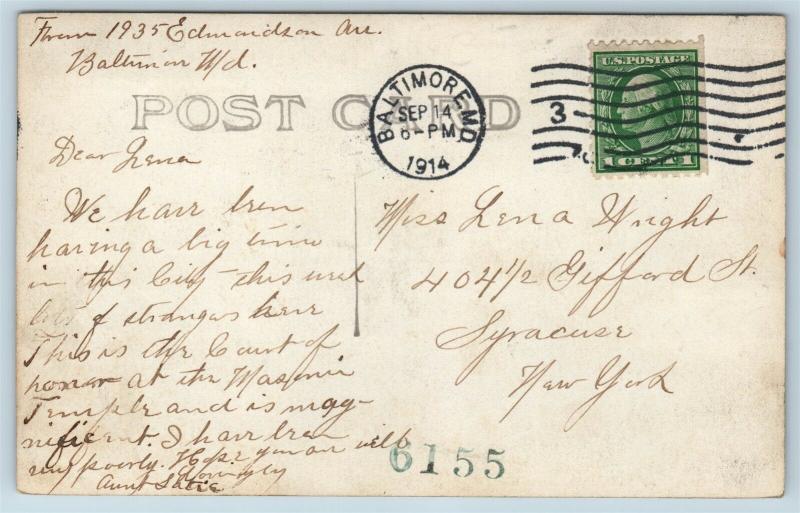 From 1935 Edmondson Ave.
Baltimore Md.
POST CARD
BALTIMORE, MD
SEP 14
6- PM
1914
3
U.S. POSTAGE
1 CENT 1
Dear Lena
We have been
having a big time
in this City this week
lots of strangers here
This is the Court of
honor at the Masonic
Temple and is mag-
nificent. I have been
very poorly. Hope you are well
Lovingly
Aunt Sadie
Miss Lena Wright
404 1/2 Gifford St.
Syracuse
New York
6155